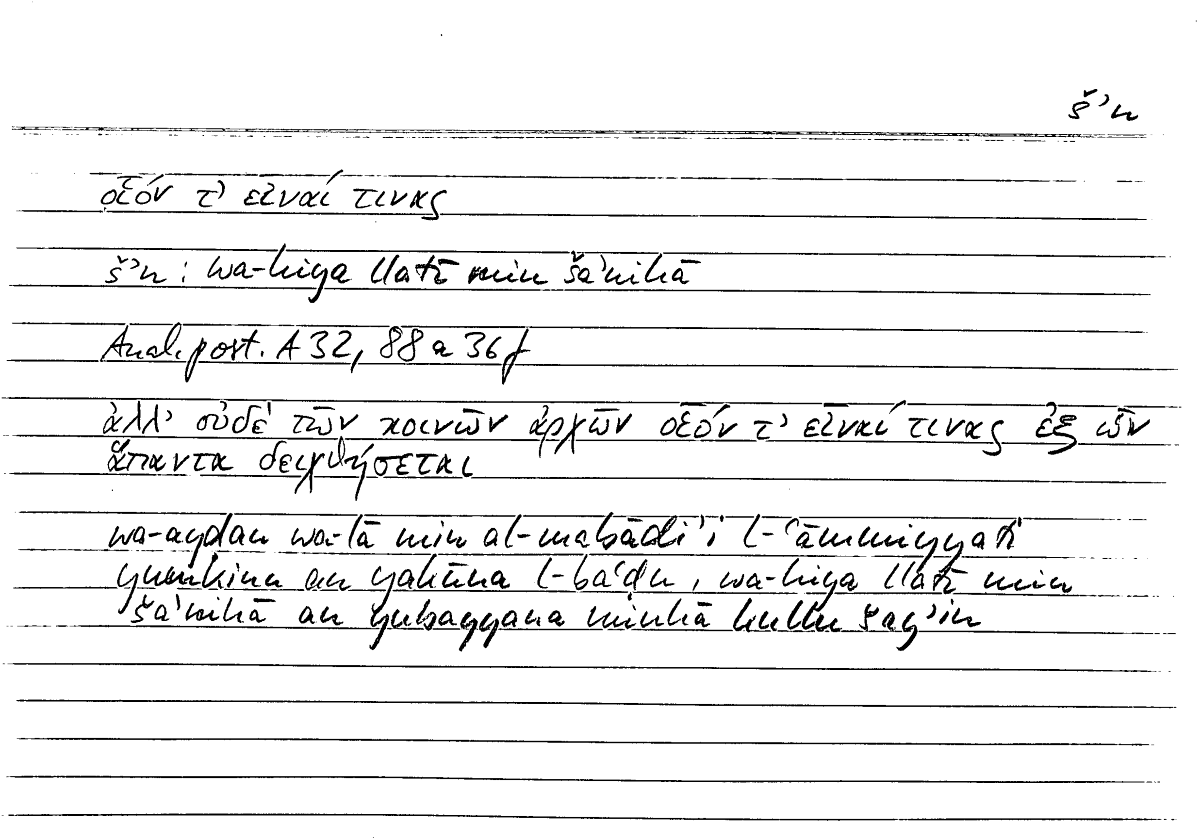 š’n
οἷόν τ’ εἶναί τινας
š’n : wa-hiya llatī min ša’nihā
Anal. post. A 32, 88 a 36 f
ἀλλ’ οὐδὲ τῶν κοινῶν ἀρχῶν οἷόν τ’ εἶναί τινας ἐξ ὧν
ἅπαντα δειχθήσεται
wa-ayḍan wa-lā min al-mabādi’i l-‘āmmiyyati
yumkinu an yakūna l-ba‘ḍu, wa-hiya llatī min
ša’nihā an yubayyana minhā kullu šay’in